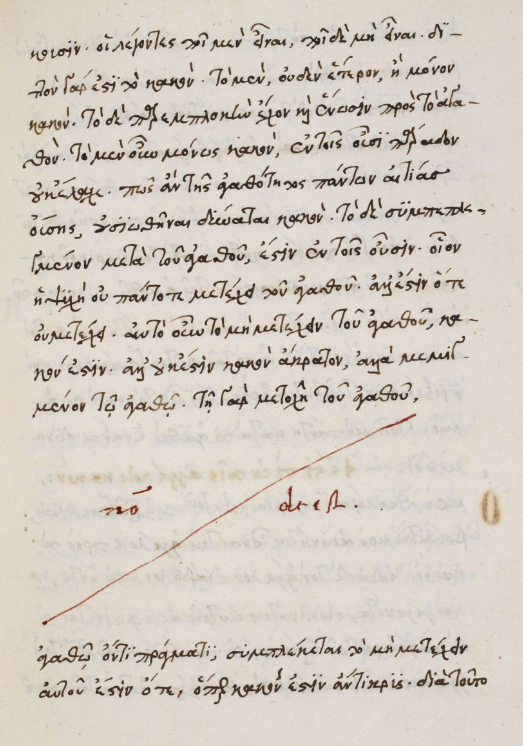 κρισϊν. οἱ λέγοντες πῆ μὲν εἶναι, πῆ δὲ μὴ εἶναι. διτ-
τὸν γάρ ἐστι τὸ κακόν. τὸ μὲν, οὐδὲν ἕτερον, ἢ μόνον
κακόν. τὸ δὲ παρεμπλοκὴν ἔχον καὶ ἕνωσιν πρὸς τὸ ἀγα-
θόν. τὸ μὲν οὖν μόνως κακὸν, ἐν τοῖς οὖσι πάροδον
οὐκ ἔλαχε. πῶς ἂν τῆς ἀγαθότητος πάντων αἰτίας
οὔσης, οὐσιωθῆναι δύναται κακόν. τὸ δὲ συμπεπλε-
γμένον μετὰ τοῦ ἀγαθοῦ, ἔστιν ἐν τοῖς οὖσιν. οἷον
ἡ ψυχὴ οὐ πάντοτε μετέχει τοῦ ἀγαθοῦ. ἀλλ' ἔστιν ὅτε
οὐ μετέχει. αὐτὸ οὖν τὸ μὴ μετέχειν τοῦ ἀγαθοῦ, κα-
κόν ἐστϊν. ἀλλ' οὐκ ἔστιν κακὸν ἄκρατον, ἀλλὰ μεμιγ-
μένον τῷ ἀγαθῷ. τῇ γὰρ μετοχῇ τοῦ ἀγαθοῦ,
nō deest
ἀγαθῷ ὄντι πράγματι, συμπλέκεται τὸ μὴ μετέχειν
αὐτοῦ ἔστιν ὅτε, ὅπερ κακὸν ἐστϊν ἄντικρϋς. διὰ τοῦτο